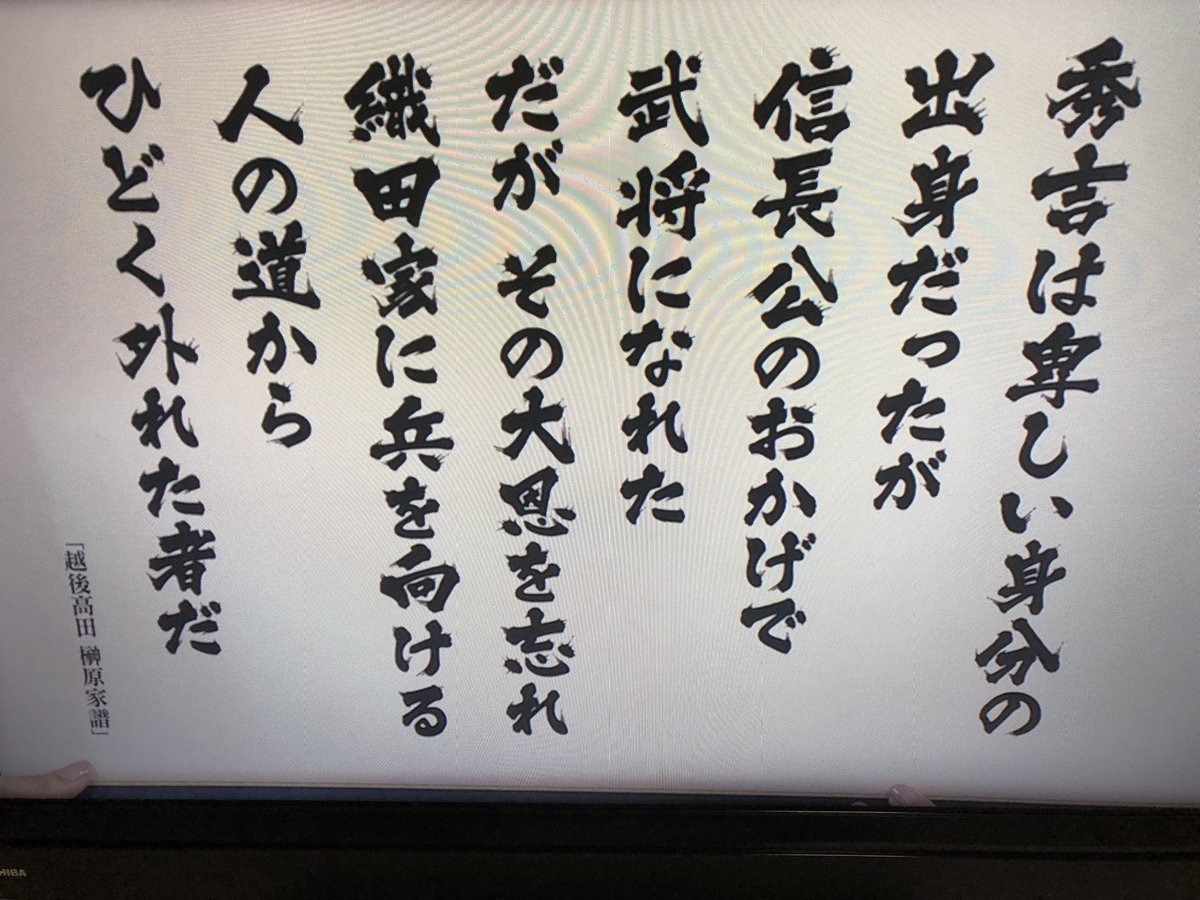 秀吉は卑しい身分の
出身だったが
信長公のおかげで
武将になれた
だが その大恩を忘れ
織田家に兵を向ける
人の道から
ひどく外れた者だ
「越後高田 榊原家譜」
HIBA